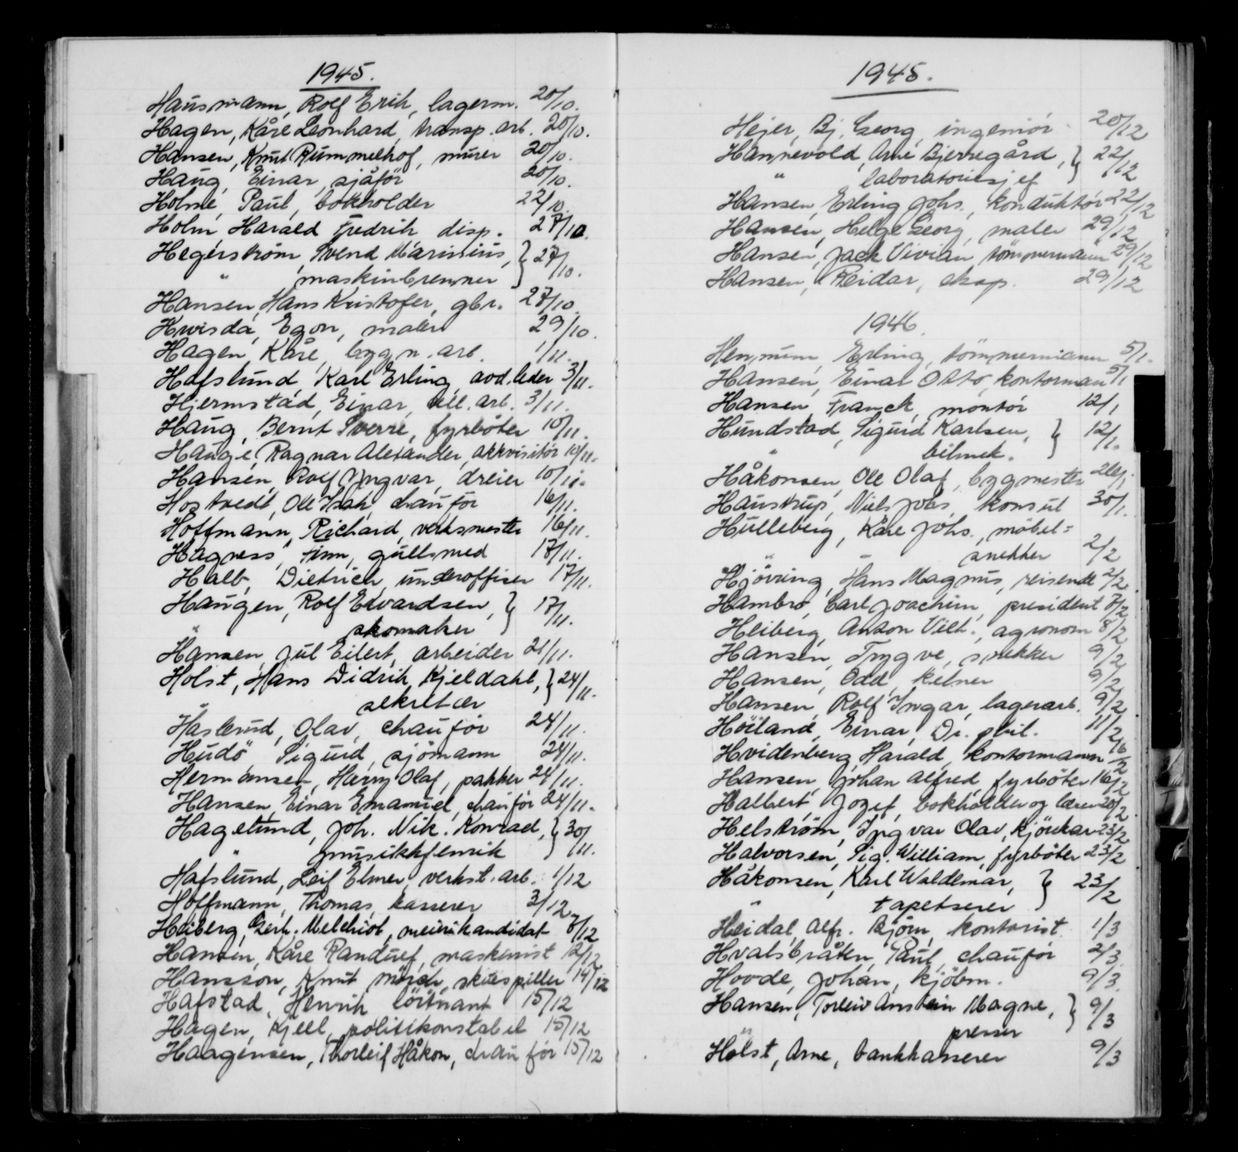 1945.
Hausmann, Rolf Erik, lagerm. 20/10.
Hagen, Kåre Leonhard, transp. arb. 20/10.
Hansen, Knut Rummelhof, murer 20/10.
Haug, Einar sjåfør 20/10.
Holme, Paul, bokholder 22/10.
Holm Harald Fredrik disp. 27/10.
Hegerstrøm, Svend Marinius, } 27/10.
" maskinbrenner
Hansen, Hans Kristofer, gbr. 27/10.
Egon, maler 29/10.
Hagen, Kåre, bygn. arb. 1/11.
Hafslund, Karl Erling, avd. leder 3/11.
Hjermstad, Einar, arb. 3/11.
Haug, Bernt Sverre, fyrbøter 10/11.
Hauge, Ragnar Alexander, akkvisitør 10/11.
Hansen, Rolf Yngvar, dreier 10/11.
Ole Isak, chaufør 16/11.
Hoffmann, Richard, verksmester 16/11.
Hagness, Finn, gullsmed 17/11.
Halb, Dietrich, underoffiser 17/11.
Haugen, Rolf Edvardsen, } 17/11.
" skomaker
Hansen, Jul Eilert, arbeider 21/11.
Holst, Hans Didrik Kjeldahl, } 24/11.
" sekretær
Haslerud, Olav, chaufør 24/11.
Hudø Sigurd, sjømann 24/11.
Hermansen, Harry Olaf, pakker 24/11.
Hansen, Einar Emanuel, chaufør 24/11.
Hagelund, Joh. Nik. Konrad, } 30/11.
" musikkflenrik
Hafslund, Leif Elmer, verkst. arb. 1/12
Hoffmann, Thomas, kasserer 3/12
Heiberg, Gerh. Melchiot, meierikandidat 7/12
Hansen, Kåre Randulf, maskinist 12/12
Hansson, Knut skuespiller 14/12
Hafstad, Henrik løitnant 15/12
Hagen, Kjell, politikonstabel 15/12
Haagensen, Thorleif Håkon, chaufør 15/12
1945.
Hejer, Bj. Georg, ingeniør 20/12
Hannevold, Arne Bjerregård, } 22/12
" laboratoriesjef
Hansen, Erling Johs., konduktør 22/12
Hansen, Helge Georg, maler 29/12
Hansen, Jack Vivian, tømmermann 29/12
Hansen, Reidar, eksp. 29/12
1946.
Hemmum, Erling, tømmermann 5/1.
Hansen, Einar Otto, kontorman 5/1
Hansen, Franck, montør 12/1
Hundstad, Sigurd Karlsen, } 12/1.
" bilmek.
Håkonsen, Ole Olaf, bygmester 26/1
Haustrup, Niels Johs, konsul 30/1.
Hulleberg, Kåre Johs., møbel=
" snekker 2/2
Hjøvring, Hans Magnus, reisende 2/2
Hambro, Carl Joachim, president 7/2
Heiberg, Anton Vilh., agronom 8/2
Hansen, Trygve, snekker 9/2
Hansen, Odd, kelner 9/2
Hansen, Rolf Yngar, lagerarb. 9/2
Høiland, Einar, Dr. phil. 11/2
Hvidenberg Harald, kontormann 16/2
Hansen, Johan Alfred, fyrbøter 16/2
Halbert, Jozef, bokholder og lærer 20/2
Helstrøm, Ingvar Olav, 23/2
Halvorsen, Sig. William, fyrbøter 23/2
Håkonsen, Karl Waldemar, } 23/2
" tapetserer
Heidal Alfr. Bjørn, kontorist 1/3
Hvalsbråten, Paul, chaufør 2/3
Hovde, Johan, kjøbm. 9/3.
Hansen, Torleiv Arnstein Magne, } 9/3
" presser
Holst, Arne, bankkasserer 9/3